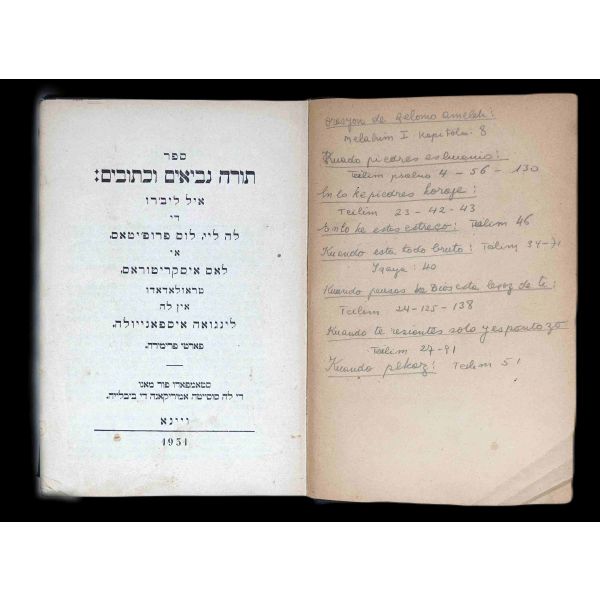 ספר
תורה נביאים וכתובים:
איל ליברו
די
לה ליי, לוס פרופ׳יטאס,
אי
לאס איסקריטוראס,
טראזלאדאדו
אין לה
לינגואה איספאנייולה.
פארטי פרימירה.
סטאמפארו פור מאנו
די לה סוסייטה אמיריקאנה די ביבלייה.
ויינא
1931
Orasyon de Selomo ameleh:
Melahim I Kapitolo: 8
Kuado piedres esluenio:
Teilim psalmo 4 - 56 - 130
En lo ke piedres koraje:
Teilim 23 - 42 - 43
En lo ke estas estreso: Teilim 46
Kuando esta todo bruto: Teilim 34-71
Isaya: 40
Kuando pensas ke Dios esta lexoz de ti:
Teilim 24-125-138
Kuando te resientes solo y espantozo
Teilim 27-91
Kuando pekaz: Teilim 51